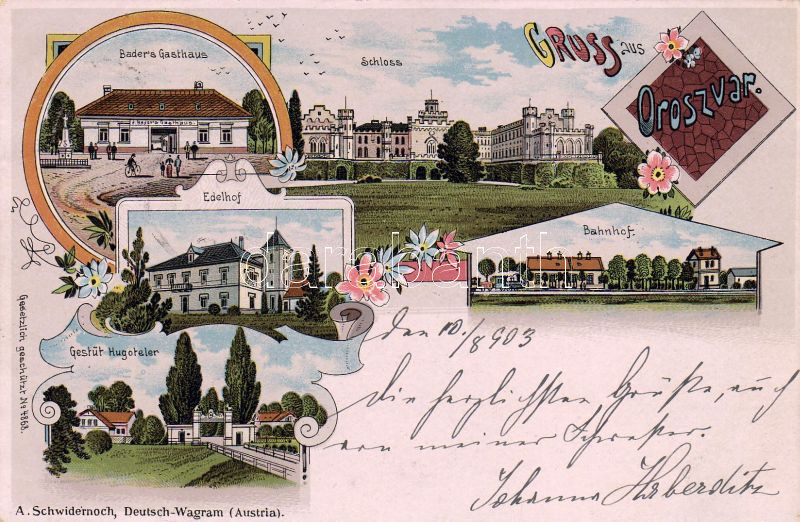 Bader's Gasthaus
J. Bader's Gasthaus
Schloss
GRUSS aus
Oroszvar.
Edelhof
Bahnhof.
darabanth
Gestüt Hugoteler
Gesetzlich geschützt No 4868.
den 10./8 903
Die herzlichsten Grüße, auch
von meiner Schwester.
Johanna Haberditz
A. Schwidernoch, Deutsch-Wagram (Austria).